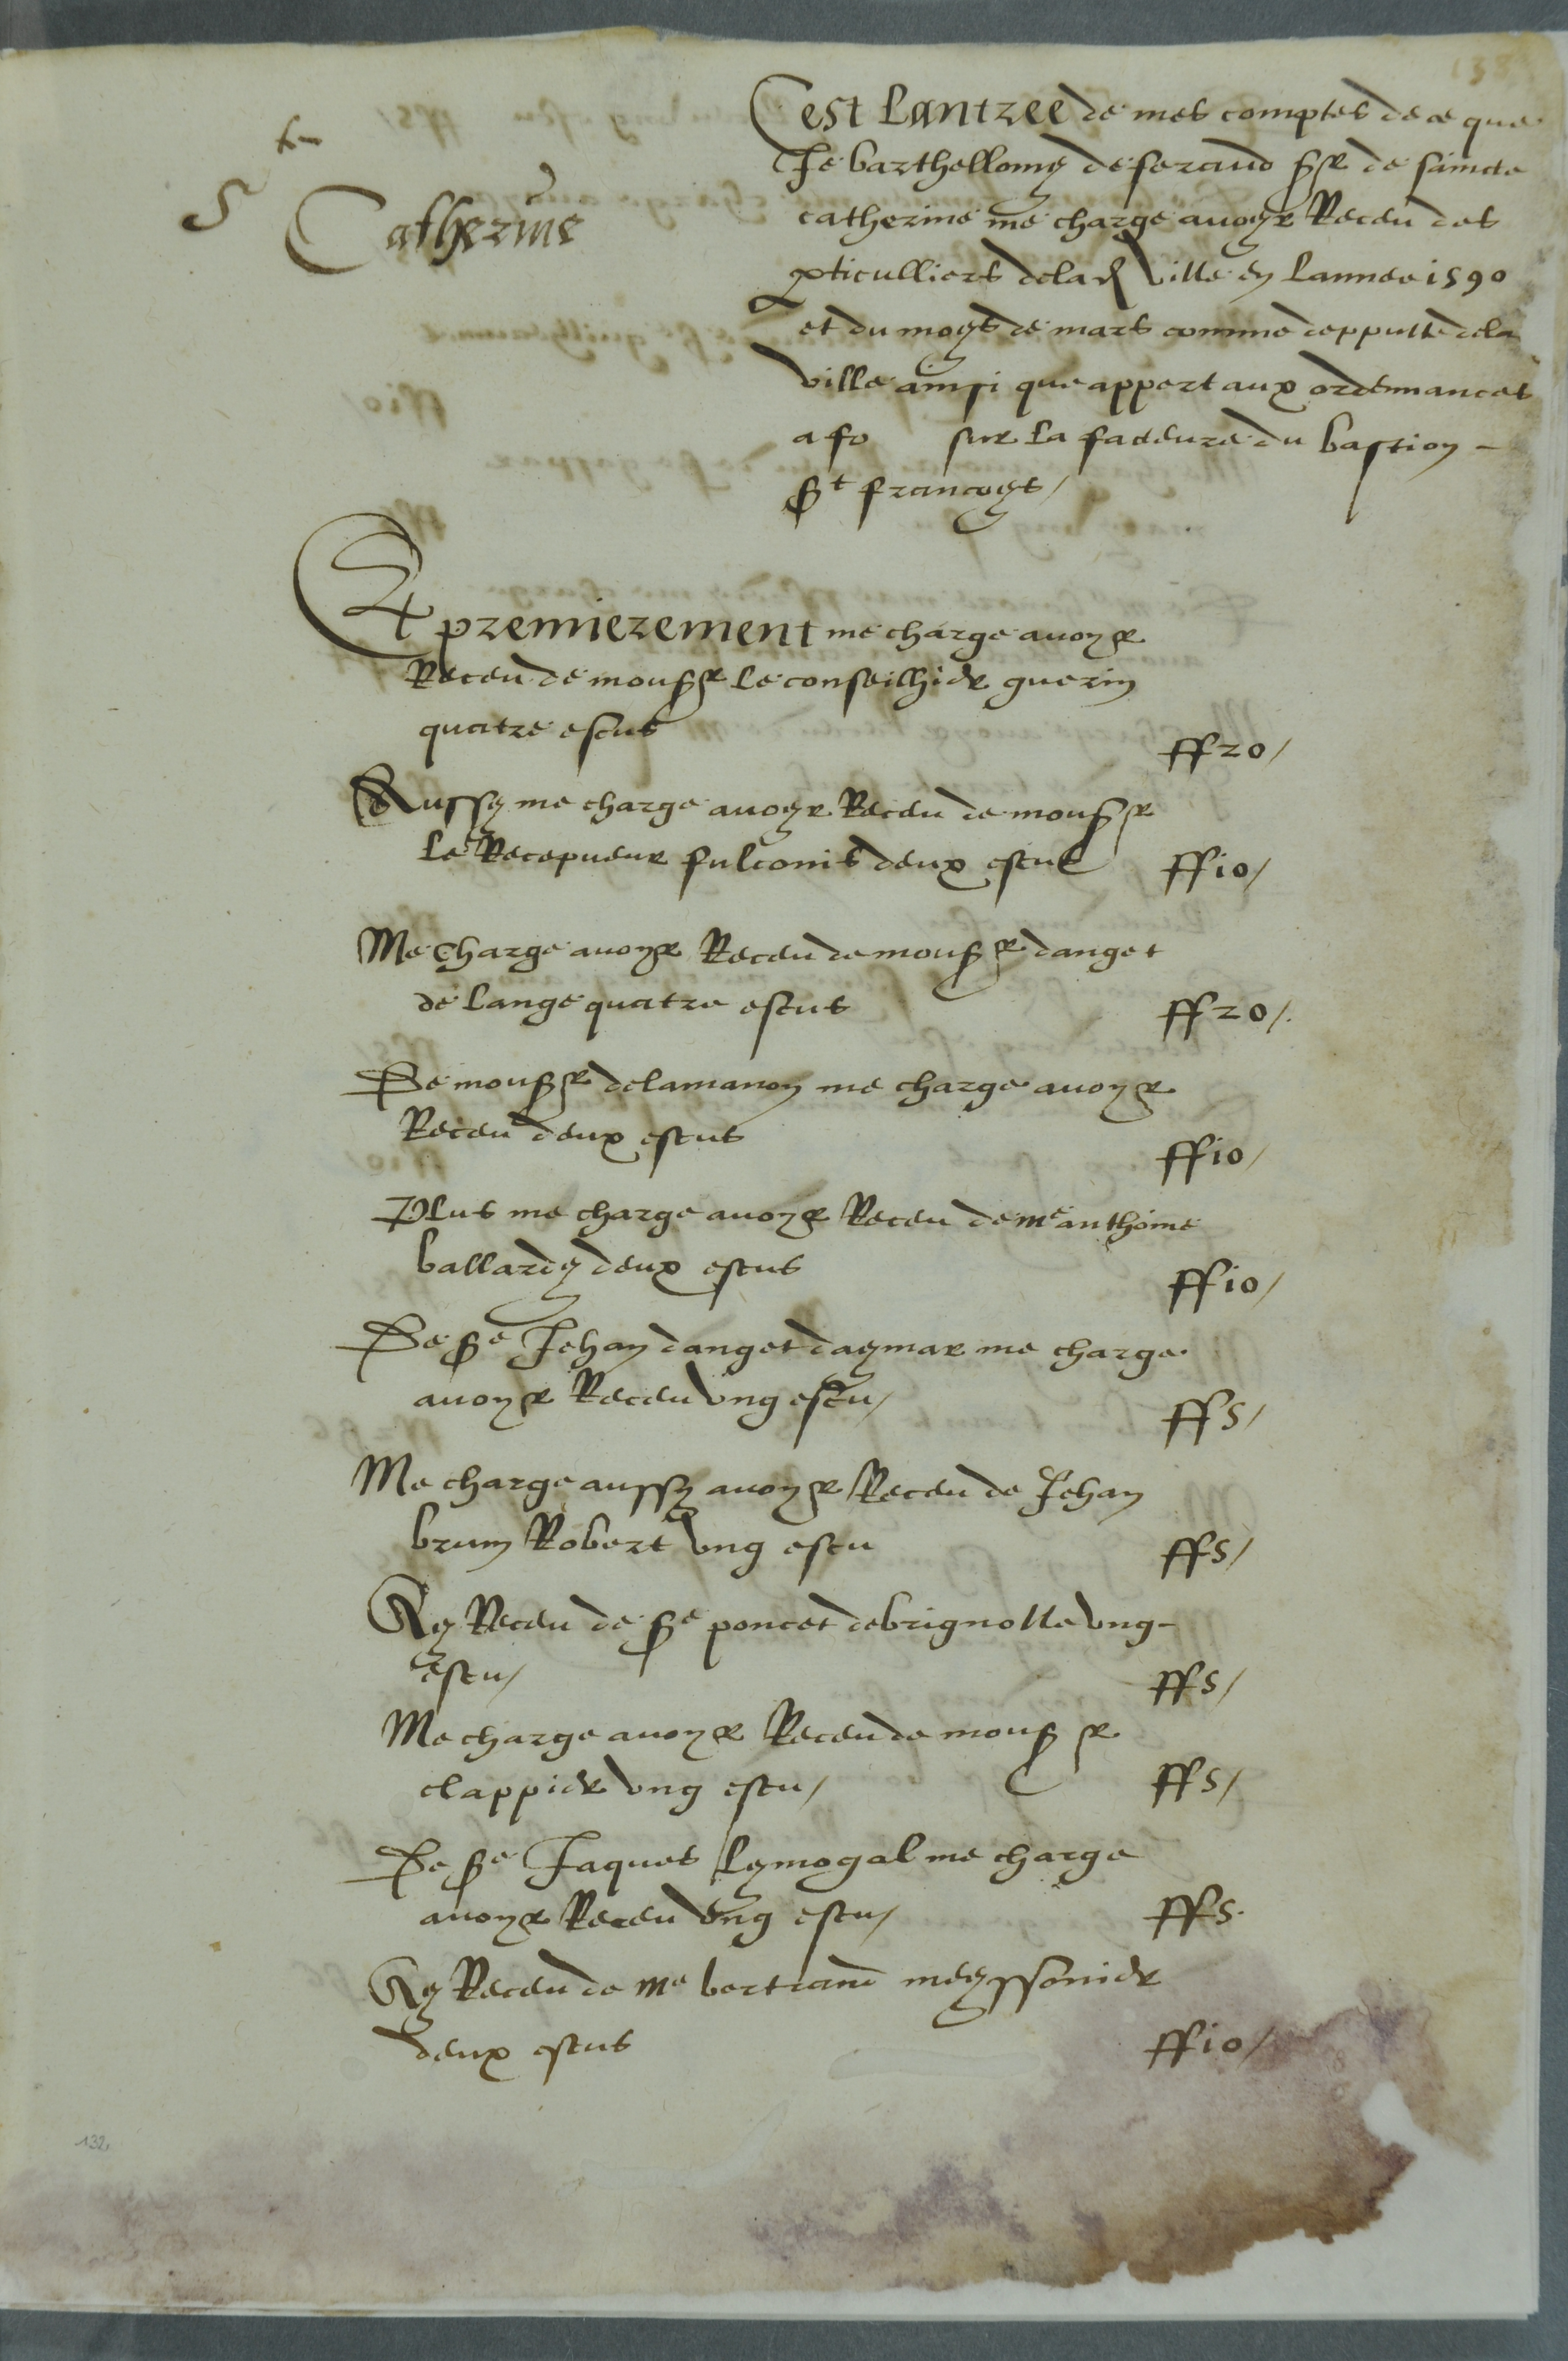 133
Ste
Catherine
Cest Lantree de mes comptes de ce que
Je barthellomy de feraud Sr de saincte
catherine me charge avoyr Receu des
pticulliers dela d ville en Lannee 1590
et du moys de mars comme depputte dela
ville ainsi que appert aux ordennances
a fo sur la facteure du bastion -
St francoys /
Et premierement me charge avoyr
Receu de monsr le conseilhier guerin
quatre escus ff20 /
Aussy me charge avoyr Receu de monsr
le Recepveur fulconis deux escus ff10 /
Me charge avoyr Receu de monsr danget
de Lange quatre escus ff20 /.
De monsr delamanon me charge avoyr
Receu deux escus ff10 /
Plus me charge avoyr Receu de me anthoine
ballardy deux escus ff10 /
De Se Jehan danget daymar me charge
avoyr Receu ung escu / ff5 /
Me charge aussy avoyr Receu de Jehan
brun Robert ung escu ff5 /
Ay Receu de Se poncet debrignolle ung -
escu / ff5 /
Me charge avoyr Receu de monsr
clappier ung escu / ff5 /
De Se Jaques Lymogal me charge
avoyr Receu ung escu / ff5.
Ay Receu de me bertrand meyssonier
deux escus ff10 /
132